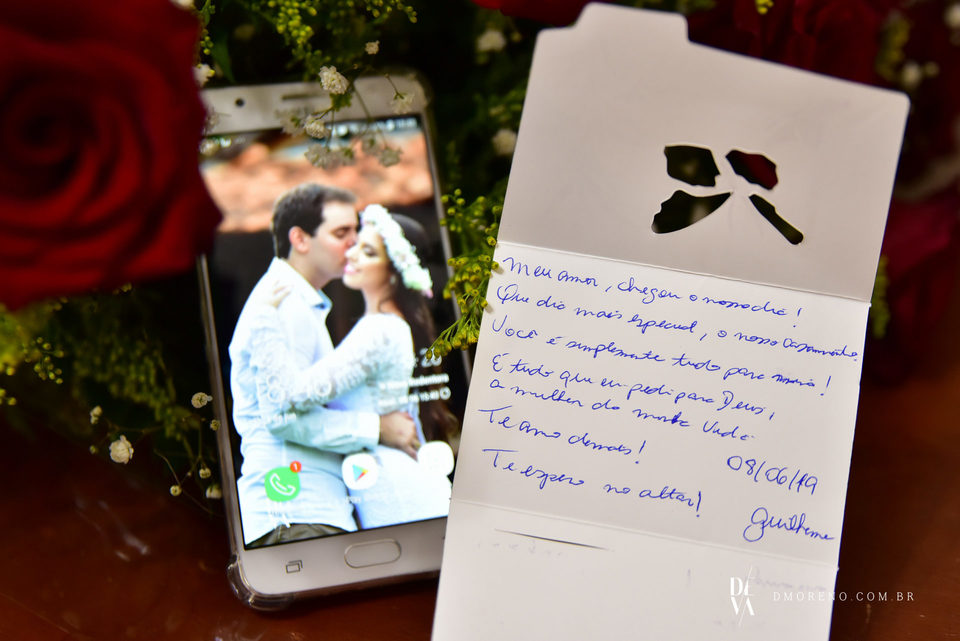 Meu amor, chegou o nosso dia!
Que dia mais especial, o nosso casamento.
Você é simplesmente tudo para mim!
É tudo que eu pedi para Deus,
a mulher da minha vida.
Te amo demais!
08/06/19
Te espero no altar!
Guilherme
1
DEVA
DMORENO.COM.BR